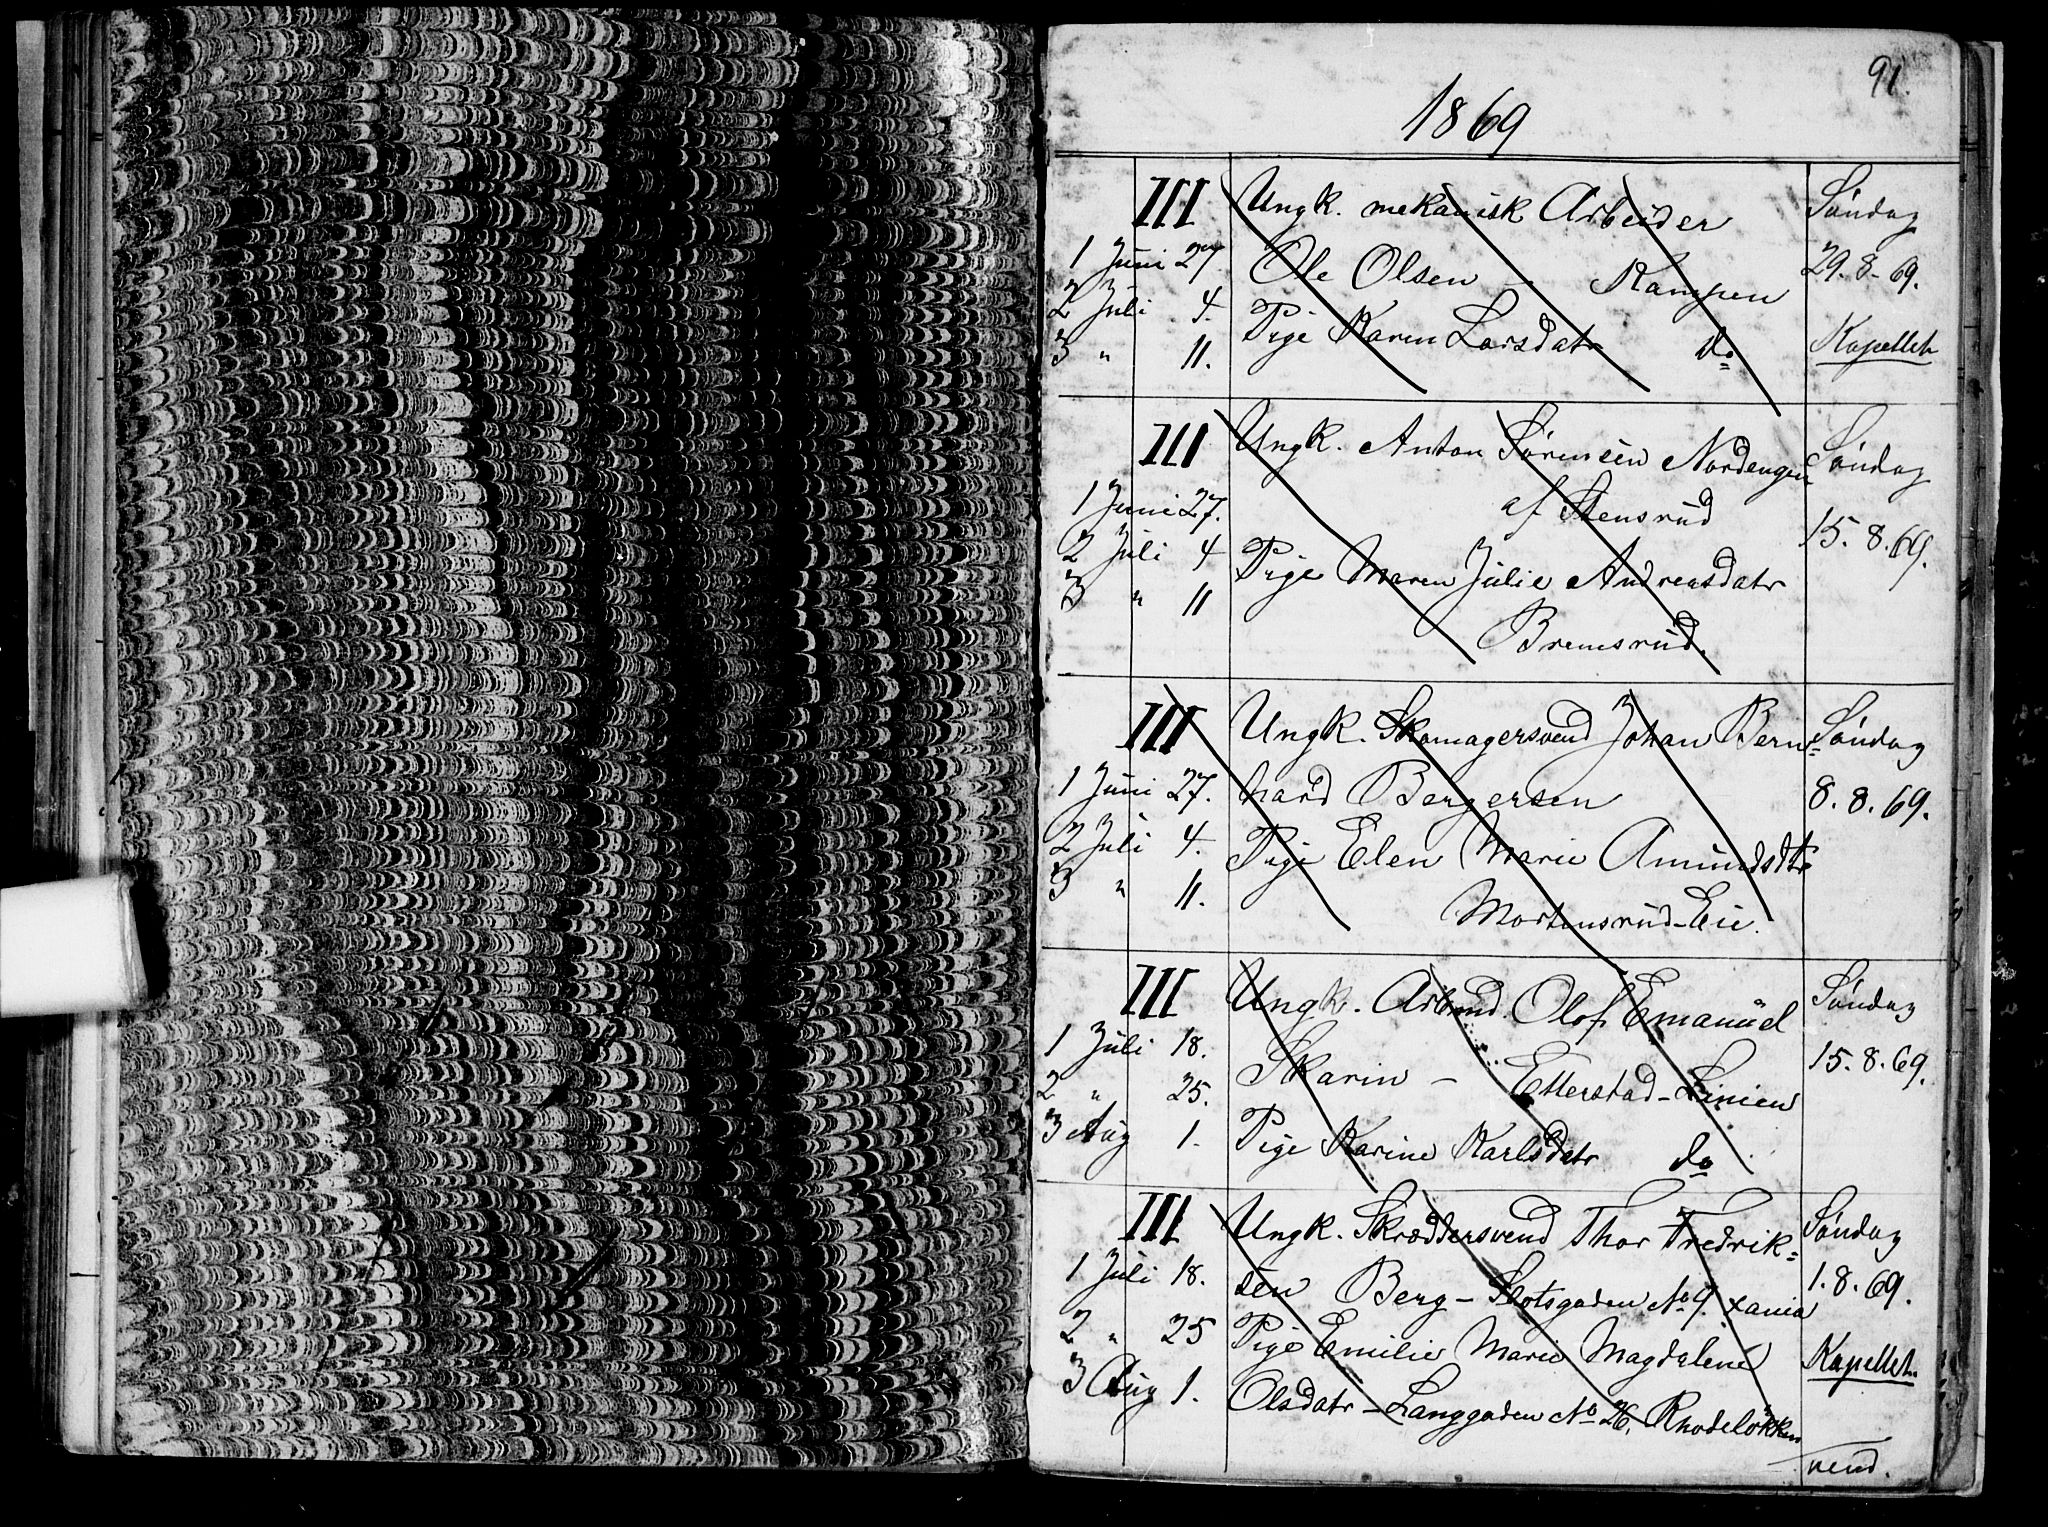 91.
1869
III Ungk. mekanisk Arbeider Søndag
1 Juni 27. Ole Olsen – Kampen 29.8.69.
2 Juli 4. Pige Karen Larsdatr do Kapellet
3 " 11.
III Ungk. Anton Sørensen Nordengen Søndag
1 Juni 27. af Stensrud 15.8.69.
2 Juli 4 Pige Maren Julie Andreasdatr
3 " 11 Bremsrud.
III Ungk. Skomagersvend Johan Bern= Søndag
1 Juni 27. hard Bergersen 8.8.69.
2 Juli 4. Pige Elen Marie Amundsdtr
3 " 11. Mortensrud-Eie.
III Ungk. Arbmd. Olof Emanuel Søndag
1 Juli 18. Skarin – Etterstad-Linien 15.8.69.
2 " 25.
3 Aug 1. Pige Karine Karlsdatr do
III Ungk. Skræddersvend Thor Fredrik= Søndag
1 Juli 18. sen Berg – Slotsgaden No 9. Xania 1.8.69.
2 " 25 Pige Emilie Marie Magdalene Kapellet.
3 Aug 1. Olsdatr – Langgaden No 26, Rhodeløkken
vend.